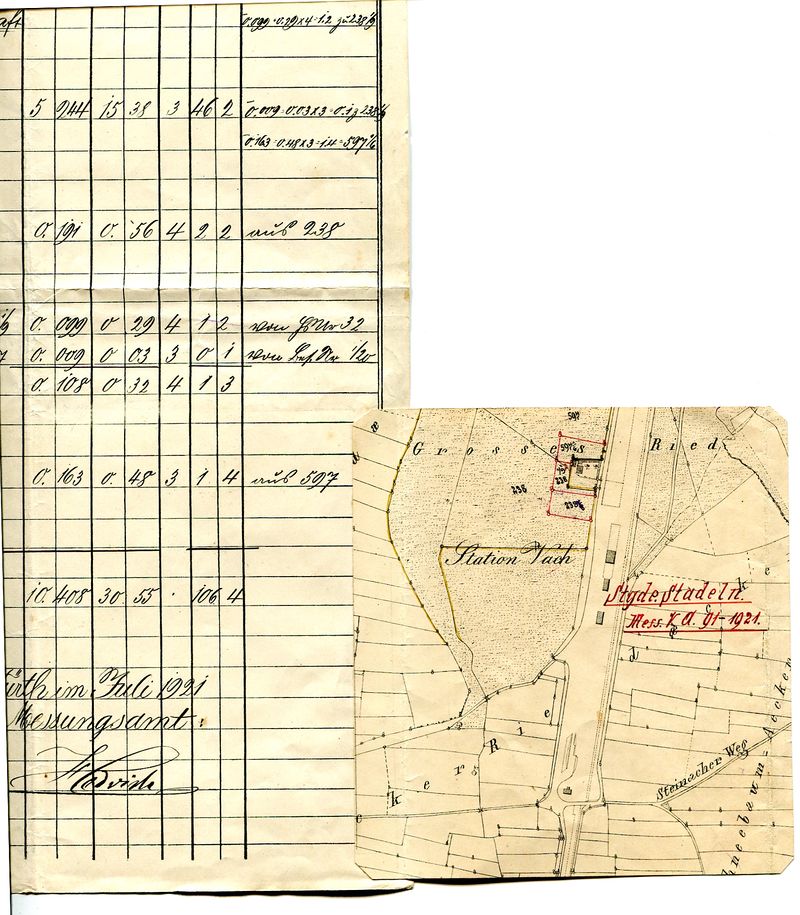 aft
0.099 = 0.29x4 = 1.2 zu 238 1/9
5 944 15 38 3 46 2 0.009 = 0.03x3 = 0.1 z 238 1/9
0.163 = 0.48x3 = 1.4 = 597 1/2
0. 191 0. 56 4 2 2 aus 238
0. 099 0 29 4 1 2 von HsNr 32
0. 009 0 03 3 0 1 von 1/20
0. 108 0 32 4 1 3
0. 163 0. 48 3 1 4 aus 597
10. 408 30 55 . 106 4
ürth im Juli 1921
Messungsamt:
597
Grosses Ried
597½
238
238
Station Vach
Stgde. Stadeln.
Mess. V. A. 91-1921.
d e
c k e
d
k e r s R i e
Steinacher Weg
hneebaum-Aecker